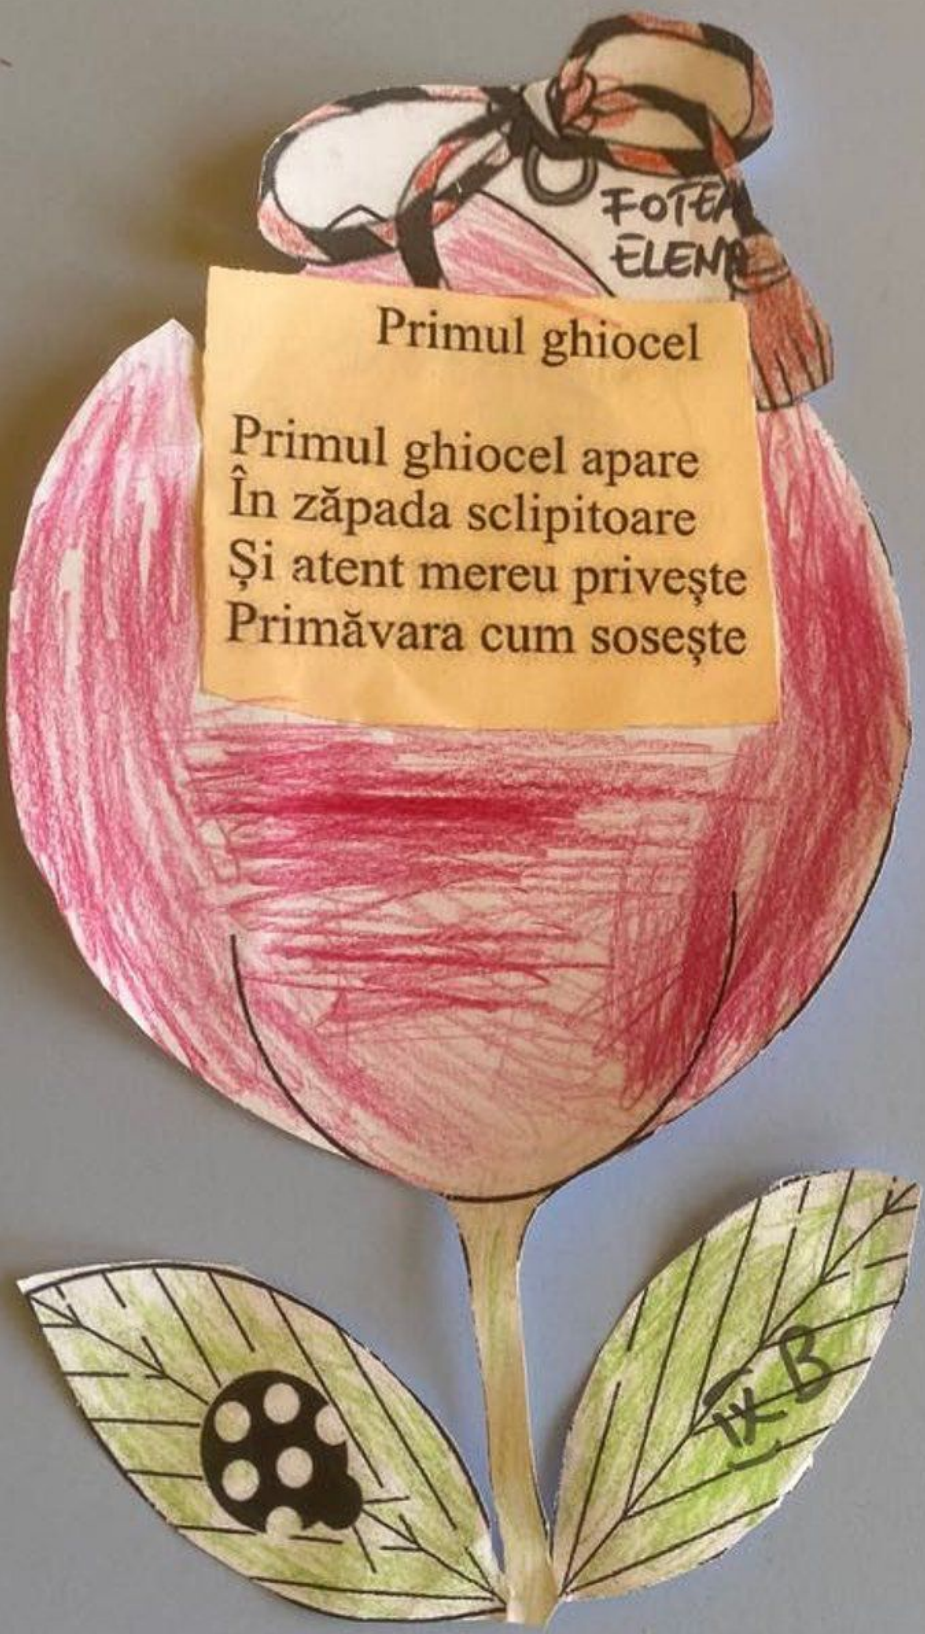 FOTEA
ELENA
Primul ghiocel
Primul ghiocel apare
În zăpada sclipitoare
Și atent mereu priveşte
Primăvara cum soseşte
IX B